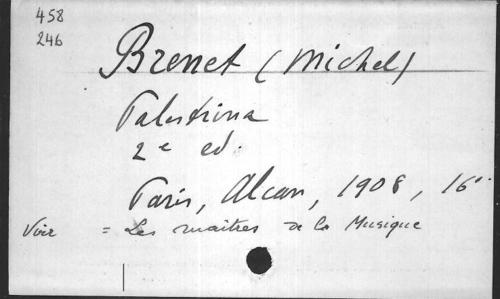 458
246
Brenet (Michel)
Palestrina
2e ed.
Paris, Alcan, 1908, 16°
Voir = Les maîtres de la Musique